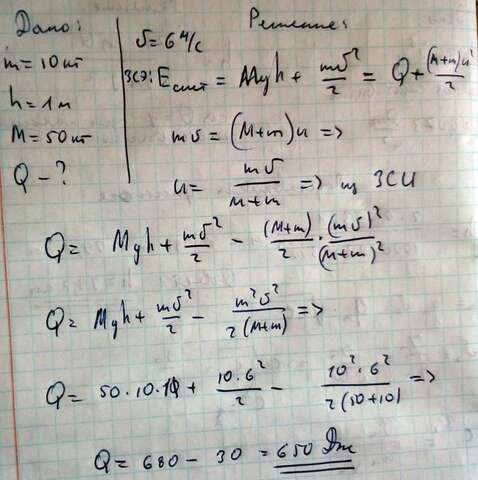 Дано:
m = 10 кг
h = 1 м
M = 50 кг
Q - ?
Решение:
υ = 6 м/с
ЗСЭ: E сист = Mgh + mυ²/2 = Q + (M+m)u²/2
mυ = (M+m)u =>
u = mυ/M+m => из ЗСИ
Q = Mgh + mυ²/2 - (M+m)/2 · (mυ)²/(M+m)²
Q = Mgh + mυ²/2 - m²υ²/2(M+m) =>
Q = 50·10·1 + 10·6²/2 - 10²·6²/2(50+10) =>
Q = 680 - 30 = 650 Дж